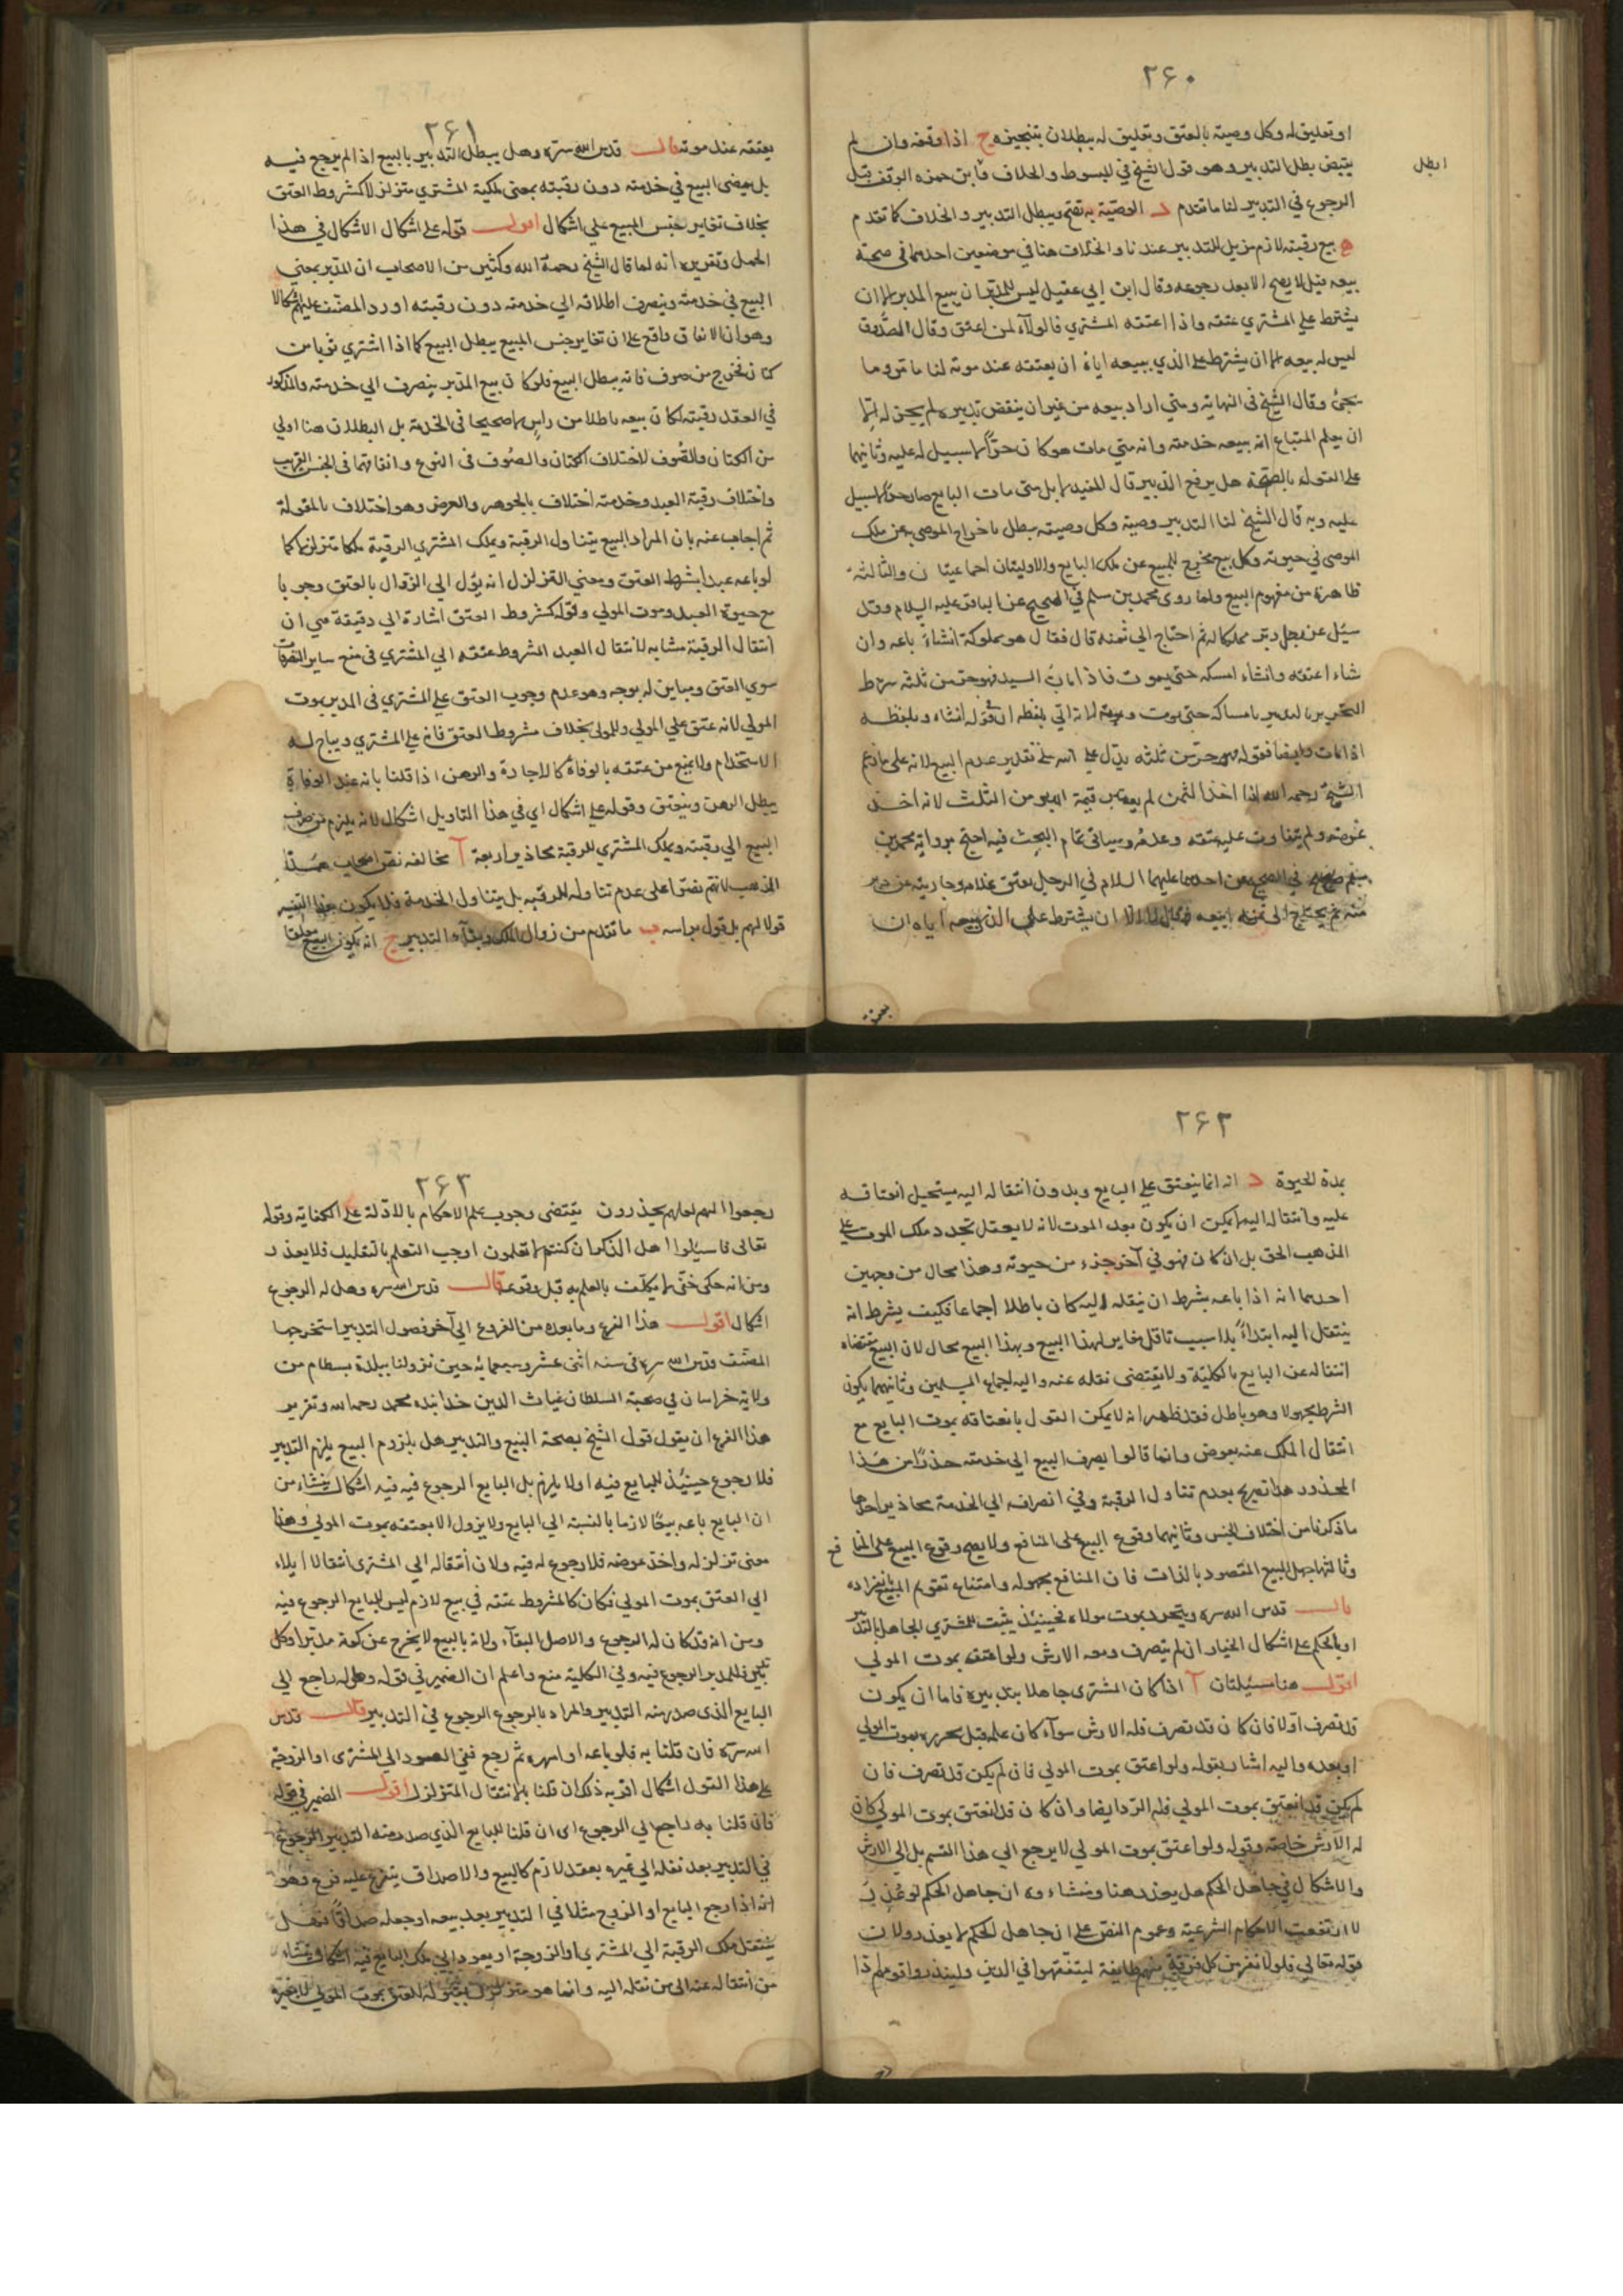 ۲۶۰
او تعليق له وكل وصية بالعتق وتعليق له يبطلان بتنجيزه ج اذا وقفه وان لم
ابطل
يقبض بطل التدبير وهو قول الشيخ في المبسوط والخلاف وابن حمزه الوقف قبل
الرجوع في التدبير لنا ما تقدم د الوصية به تصح ويبطل التدبير والخلاف كما تقدم
ه بيع رقبته لازم مزيل للتدبير عندنا والخلاف هنا في موضعين احدهما في صحة
بيعه قيل لا يصح الا بعد رجوعه وقال ابن ابي عقيل ليس للمدبر ان يبيع المدبر الا ان
يشترط على المشتري عتقه واذا اعتقه المشتري فالولاء لمن اعتق وقال الصدوق
ليس له بيعه الا ان يشترط على الذي يبيعه اياه ان يعتقه عند موته لنا ما مر وما
يجئ وقال الشيخ في النهاية ومتى اراد بيعه من غير ان ينقض تدبيره لم يجز له الا
ان يعلم المبتاع انه يبيعه خدمته وانه متى مات هو كان حرا لا سبيل له عليه وثانيهما
على القول بالصحة هل يرفع التدبير قال المفيد لا بل متى مات البايع صار حرا لا سبيل
عليه وبه قال الشيخ لنا التدبير وصية وكل وصية يبطل باخراج الموصى به عن ملك
الموصي في حيوته وكل بيع مخرج للمبيع عن ملك البايع والاوليتان اجماعيتان والثالثة
ظاهرة من مفهوم البيع ولما روى محمد بن مسلم في الصحيح عن الباقر عليه السلام وقد
سئل عن رجل دبر مملوكا له ثم احتاج الى ثمنه قال فقال هو مملوكه ان شاء باعه وان
شاء اعتقه وان شاء امسكه حتى يموت فاذا مات السيد فهو حر من ثلثه
اذا مات وايضا فقوله فهو حر من ثلثه يدل على تقدير عدم البيع لانه على
الشيخ رحمه الله اذا اخذ الثمن لم قيمة من الثلث لانه اخذ
عوضه ولم يتفاوت عليه عتقه وعدمه وسياتي تمام البحث فيه احتج برواية محمد بن
مسلم في الصحيح عن احدهما عليهما السلام في الرجل يعتق غلامه وجاريته عن دبر
منه ثم يحتاج الى ثمنه ايبيعه فقال لا الا ان يشترط على الذي يبيعه اياه ان
يعتقه
۲۶۱
يعتقه عند موته قال قدس الله سره وهل يبطل التدبير بالبيع اذا لم يرجع فيه
بل يمضى البيع في خدمته دون رقبته بمعنى ملكية المشتري متزلزلا كمشروط العتق
بخلاف تغاير جنس المبيع على اشكال اقول قوله على اشكال الاشكال في هذا
الحمل وتقريره انه لما قال الشيخ رحمه الله وكثير من الاصحاب ان المدبر يمضي
البيع في خدمته وينصرف اطلاقه الى خدمته دون رقبته اورد المصنف عليهم اشكالا
وهو ان الاتفاق واقع على ان تغاير جنس المبيع يبطل البيع كما اذا اشتري ثوبا من
كتان فخرج من صوف فانه يبطل البيع فلو كان بيع المدبر ينصرف الى خدمته والمذكور
في العقد رقبته لكان بيعه باطلا من راس لا صحيحا في الخدمة بل البطلان هنا اولى
من الكتان والصوف لاختلاف الكتان والصوف في النوع واتفاقهما في الجنس القريب
واختلاف رقبة العبد وخدمته اختلاف بالجوهر والعرض وهو اختلاف بالمقولة
ثم اجاب عنه بان المراد البيع يتناول الرقبة ويملك المشتري الرقبة ملكا متزلزلا كما
لو باعه عبدا بشرط العتق ومعنى التزلزل انه يؤل الى الزوال بالعتق وجوبا
مع حيوة العبد وموت المولى وقوله كمشروط العتق اشارة الى دقيقة هي ان
انتقال الرقبة مشابه لانتقال العبد المشروط عتقه الى المشتري في منع ساير التصرفات
سوى العتق ومباين له بوجه وهو عدم وجوب العتق على المشتري في المدبر بموت
المولى لانه عتق على المولى وللمولى بخلاف مشروط العتق فانه على المشتري ويباح له
الاستخدام ولا يمنع من عتقه بالوفاة كالاجارة والرهن اذا قلنا بانه عند الوفاة
يبطل الرهن وينعتق وقوله على اشكال اي في هذا التاويل اشكال لانه يلزم من صرف
البيع الى رقبته ويملك المشتري للرقبة محاذير اربعة آ مخالفه نص اصحاب هذا
المذهب لانهم نصوا على عدم تناوله للرقبه بل يتناول الخدمة فلا يكون هذا التفسير
قولا لهم بل قول براسه ب ما تقدم من زوال الملك وبقاء التدبير ج انه يكون البيع مغلقا
۲۶۲
بمدة الحيوة د انه انما ينعتق على البايع وبدون انتقاله اليه يستحيل انعتاقه
عليه وانتقاله اليه لا يمكن ان يكون بعد الموت لانه لا يعقل تجدد ملك الموت على
المذهب الحق بل ان كان فهو في آخر جزء من حيوته وهذا محال من وجهين
احدهما انه اذا باعه بشرط ان ينقله اليه كان باطلا اجماعا فكيف يشرط انه
ينتقل اليه ابتداء بلا سبب ناقل مغاير لهذا البيع وبهذا البيع محال لان البيع مقتضاه
انتقاله عن البايع بالكلية ولا يقتضى نقله عنه واليه لجماع المسلمين وثانيهما يكون
الشرط مجهولا وهو باطل فقد ظهر انه لا يمكن القول بانعتاقه بموت البايع مع
انتقال الملك عنه بعوض وانما قالوا يصرف البيع الى خدمته حذرا من هذا
المحذور هذا تصريح بعدم تناول الرقبة وفي انصرافه الى الخدمة محاذير احدها
ما ذكرنا من اختلاف الجنس وثانيهما وقوع البيع على المنافع ولا يصح وقوع البيع على المنافع
وثالثها جهل المبيع المقصود بالذات فان المنافع مجهوله وامتناع تقوم المبيع بانفراده
قال قدس الله سره ويتحرر بموت مولاه فحينئذ يثبت للمشتري الجاهل بالتدبير
او بالحكم على اشكال الخيار ان لم يتصرف ومعه الارش ولو اعتق بموت المولى
اقول هنا مسئلتان آ اذا كان المشترى جاهلا بتدبيره فاما ان يكون
قد تصرف اولا فان كان قد تصرف فله الارش سوآء كان علم قبل تحرره بموت المولى
او بعده واليه اشار بقوله ولو اعتق بموت المولى فان لم يكن قد تصرف فان
لم يكن قد انعتق بموت المولى فله الرد ايضا وان كان قد انعتق بموت المولى كان
له الارش خاصة وقوله ولو اعتق بموت المولى لا يرجع الى هذا القسم بل الى الارش
والاشكال في جاهل الحكم هل يعذر هنا ومنشاءوه ان جاهل الحكم لو عذر
لارتفعت الاحكام الشرعية وعموم النص على ان جاهل الحكم لا يعذر ولان
قوله تعالى فلولا نفر من كل فرقة منهم طايفة ليتفقهوا في الدين ولينذروا قومهم اذا
۲۶۳
رجعوا اليهم لعلهم يحذرون يقتضى وجوب علم الاحكام بالادلة على الكفاية وقوله
تعالى فاسئلوا اهل الذكر ان كنتم لا تعلمون اوجب التعلم بالتقليد فلا يعذر
ومن انه حكم خفي لا يكلف بالعلم به قبل وقوعه قال قدس الله سره وهل له الرجوع
اشكال اقول هذا الفرع وما بعده من الفروع الى آخر فصول التدبير استخرجها
المصنف قدس الله سره في سنه اثنى عشر وسبعمايه حين نزولنا ببلدة بسطام من
ولاية خراسان في صحبة السلطان غياث الدين خدابنده محمد رحمه الله وتقرير
هذا الفرع ان يقول قول الشيخ بصحة البيع والتدبير هل بلزوم البيع يلزم التدبير
فلا رجوع حينئذ للبايع فيه او لا يلزم بل للبايع الرجوع فيه فيه اشكال ينشاء من
ان البايع باعه بيعا لازما بالنسبة الى البايع ولا يزول الا بعتقه بموت المولى وهذا
معنى تزلزله واخذ عوضه فلا رجوع له فيه ولان انتقاله الى المشترى انتقالا ايلاء
الى العتق بموت المولى فكان كالمشروط عتقه في بيع لازم ليس للبايع الرجوع فيه
ومن انه قد كان له الرجوع والاصل البقآء ولانه بالبيع لا يخرج عن كونه مدبرا وكل
تدبير فللمدبر الرجوع فيه وفي الكلية منع واعلم ان الضمير في قوله وهل له راجع الى
البايع الذى صدر منه التدبير والمراد بالرجوع الرجوع في التدبير قال قدس
الله سره فان قلنا به فلو باعه او امهره ثم رجع ففي العود الى المشترى او الزوجة
على هذا القول اشكال اقربه ذلك ان قلنا بالانتقال المتزلزل اقول الضمير في قوله
فان قلنا به راجع الى الرجوع اى ان قلنا للبايع الذي صدر منه التدبير الرجوع
في التدبير بعد نقله الى غيره بعقد لازم كالبيع والاصداق يتفرع عليه فرع وهو
انه اذا رجع البايع او الزوج مثلا في التدبير بعد بيعه او جعله صداقا فهل
ينتقل ملك الرقبة الى المشتري او الزوجة او يعود الى ملك البايع فيه اشكال ومنشاء
من انتقاله عنه الى من نقله اليه وانما هو متزلزل بموت المولى لا غيره